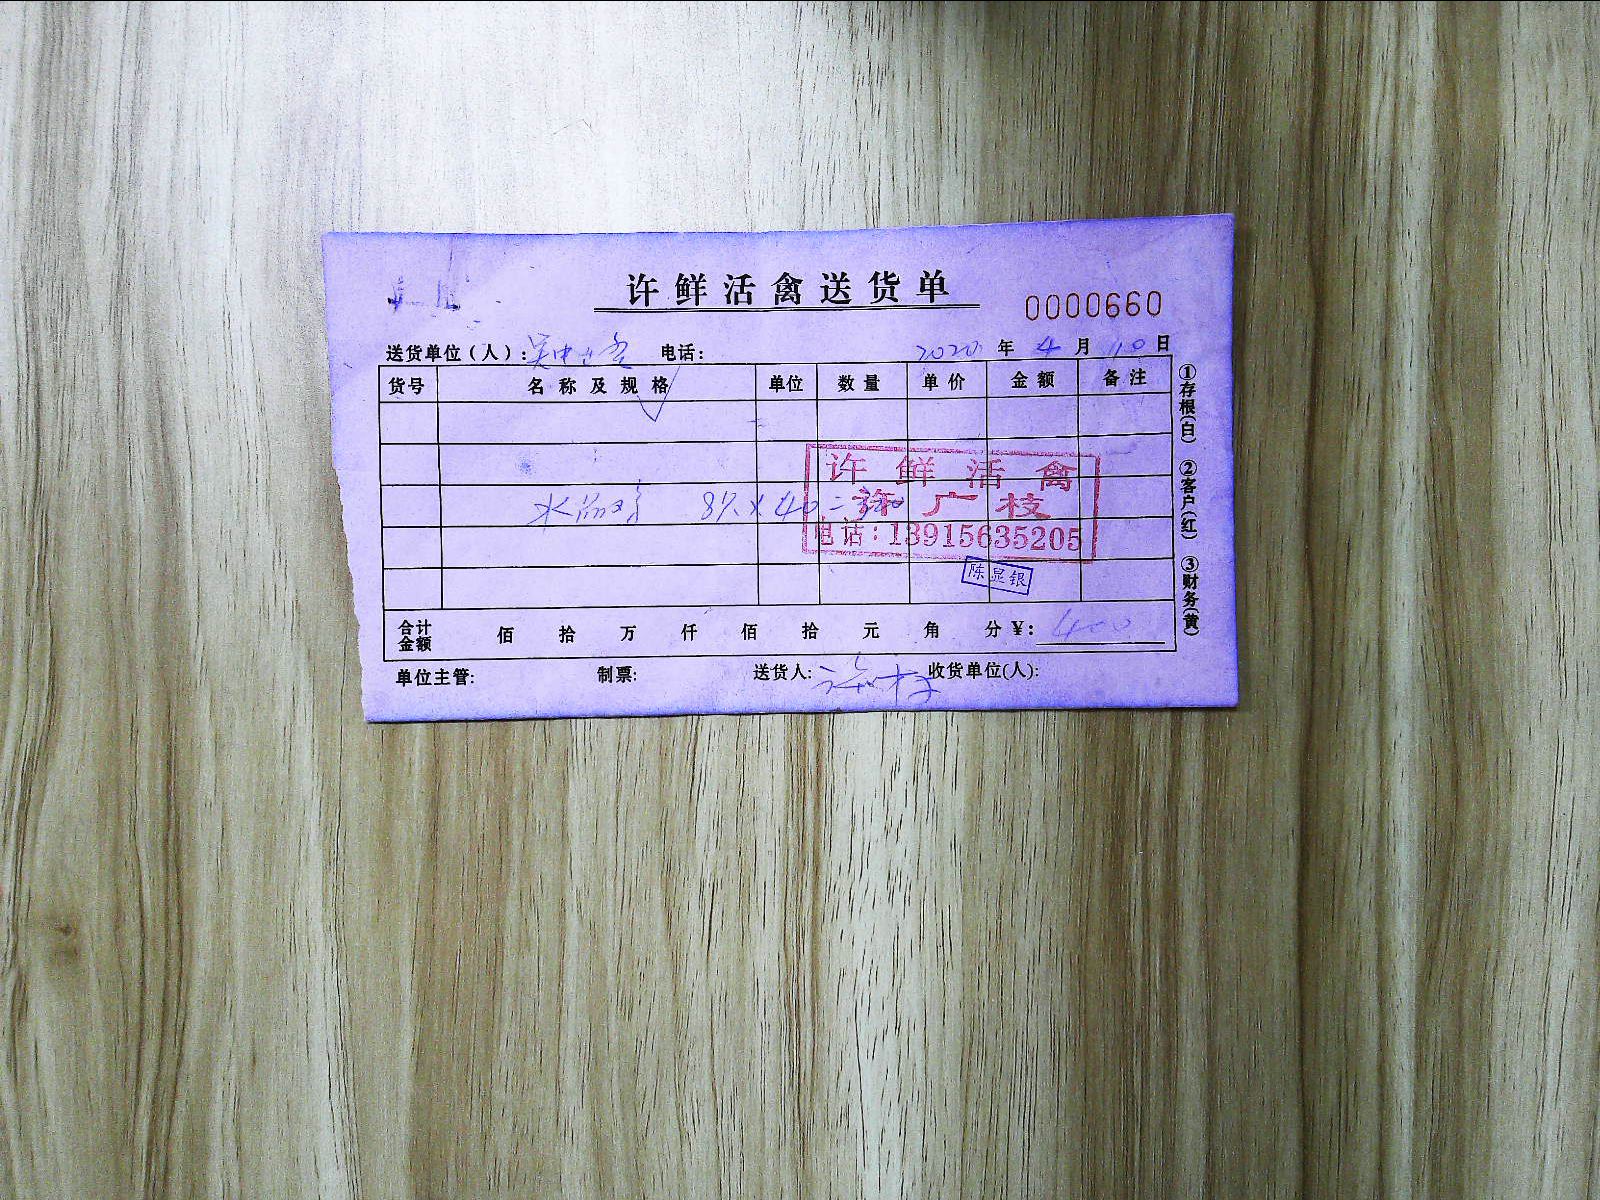 许鲜活禽送货单
0000660
送货单位(人): 吴中 电话: 2020 年 4 月 10 日
货号 名称及规格 单位 数量 单价 金额 备注
许鲜活禽
8只×40=320
许广枝
电话:13915635205
陈显银
合计金额 佰 拾 万 仟 佰 拾 元 角 分 ¥: 400
单位主管: 制票: 送货人: 收货单位(人):
①存根(白) ②客户(红) ③财务(黄)